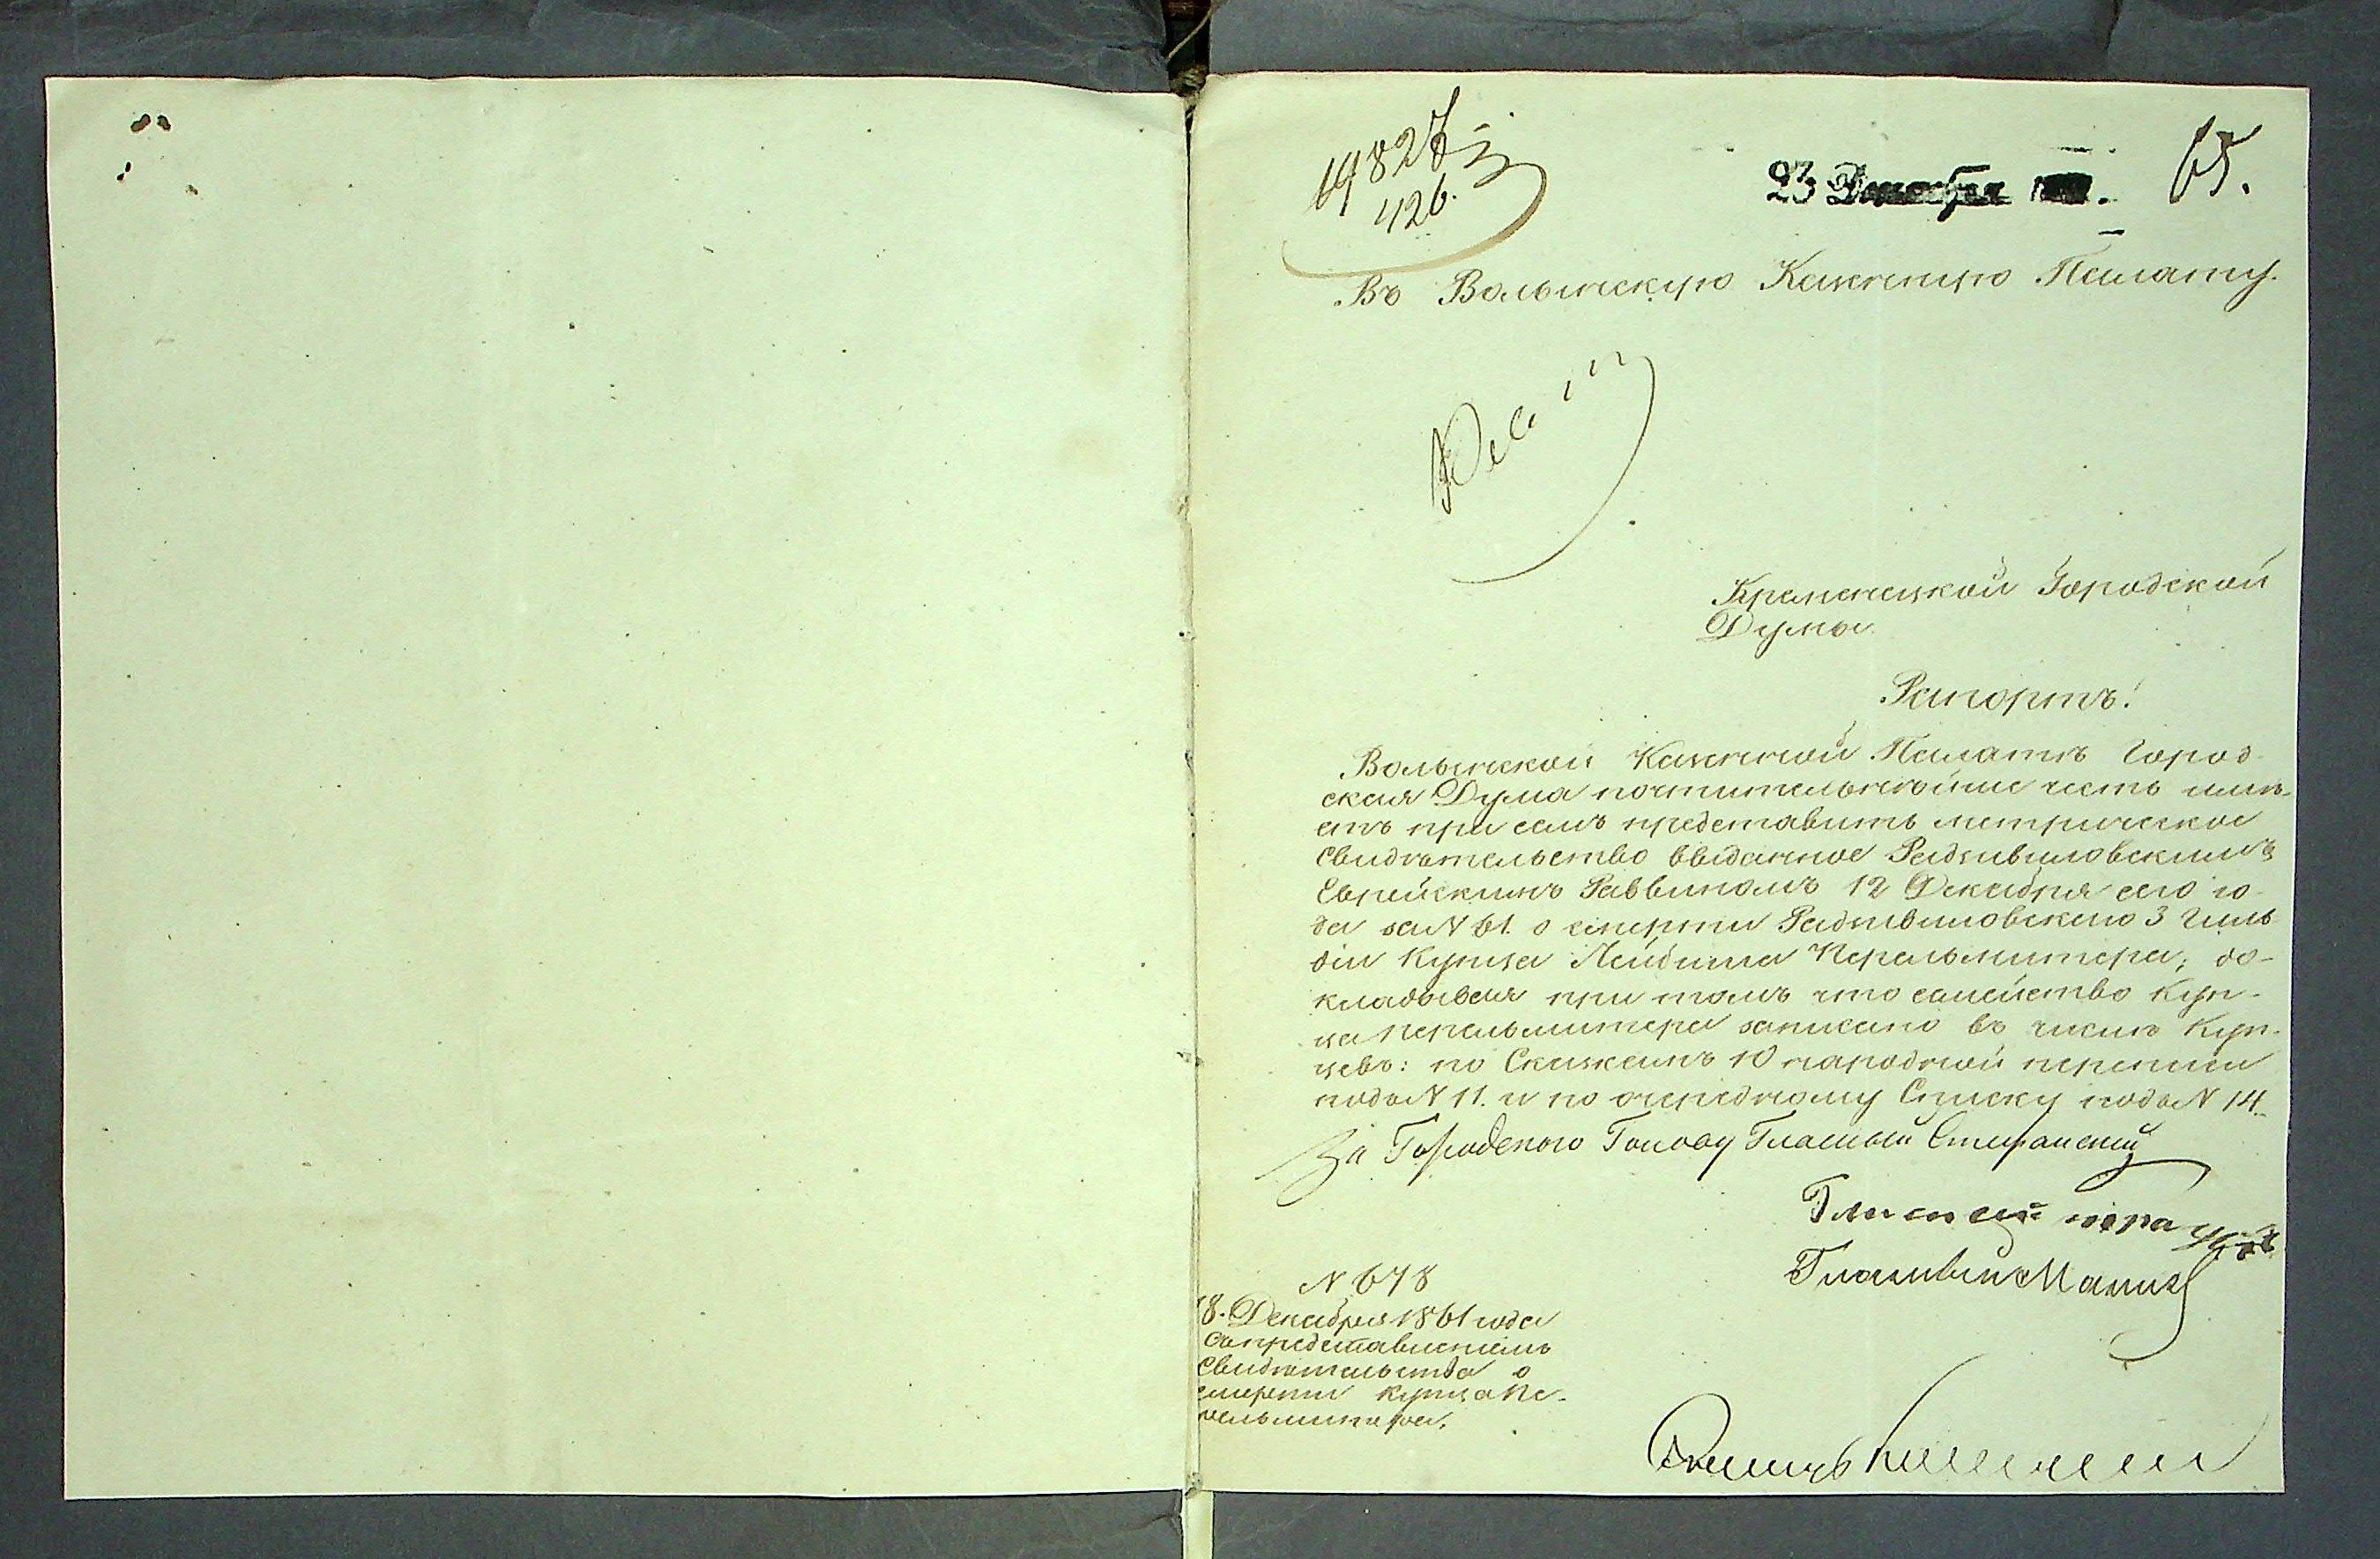 19827
426.
23 Декабря
65.
Въ Волынскую Казенную Палату.
Кременецкой Городской
Думы
Рапортъ!
Волынской Казенной Палатѣ Город-
ская Дума почтительнѣйше честь имѣ-
етъ при семъ представить метрическое
свидѣтельство выданное Радзивиловскимъ
Еврейскимъ Раввиномъ 12 Декабря сего го-
да за N 61. о смерти Радзивиловскаго 3 гиль-
діи Купца Лейбиша Перельмитера; до-
кладывая при томъ что семейство Куп-
ца Перельмитера записано въ числѣ Куп-
цевъ: по Сказкамъ 10 народной переписи
подъ N 11. и по очередному Списку подъ N 14.
За Городскаго Голову Гласный
Гласный
Гласный
N 678
18. Декабря 1861 года
Съ представленіемъ
свидѣтельства о
смерти купца Пе-
рельмитера.